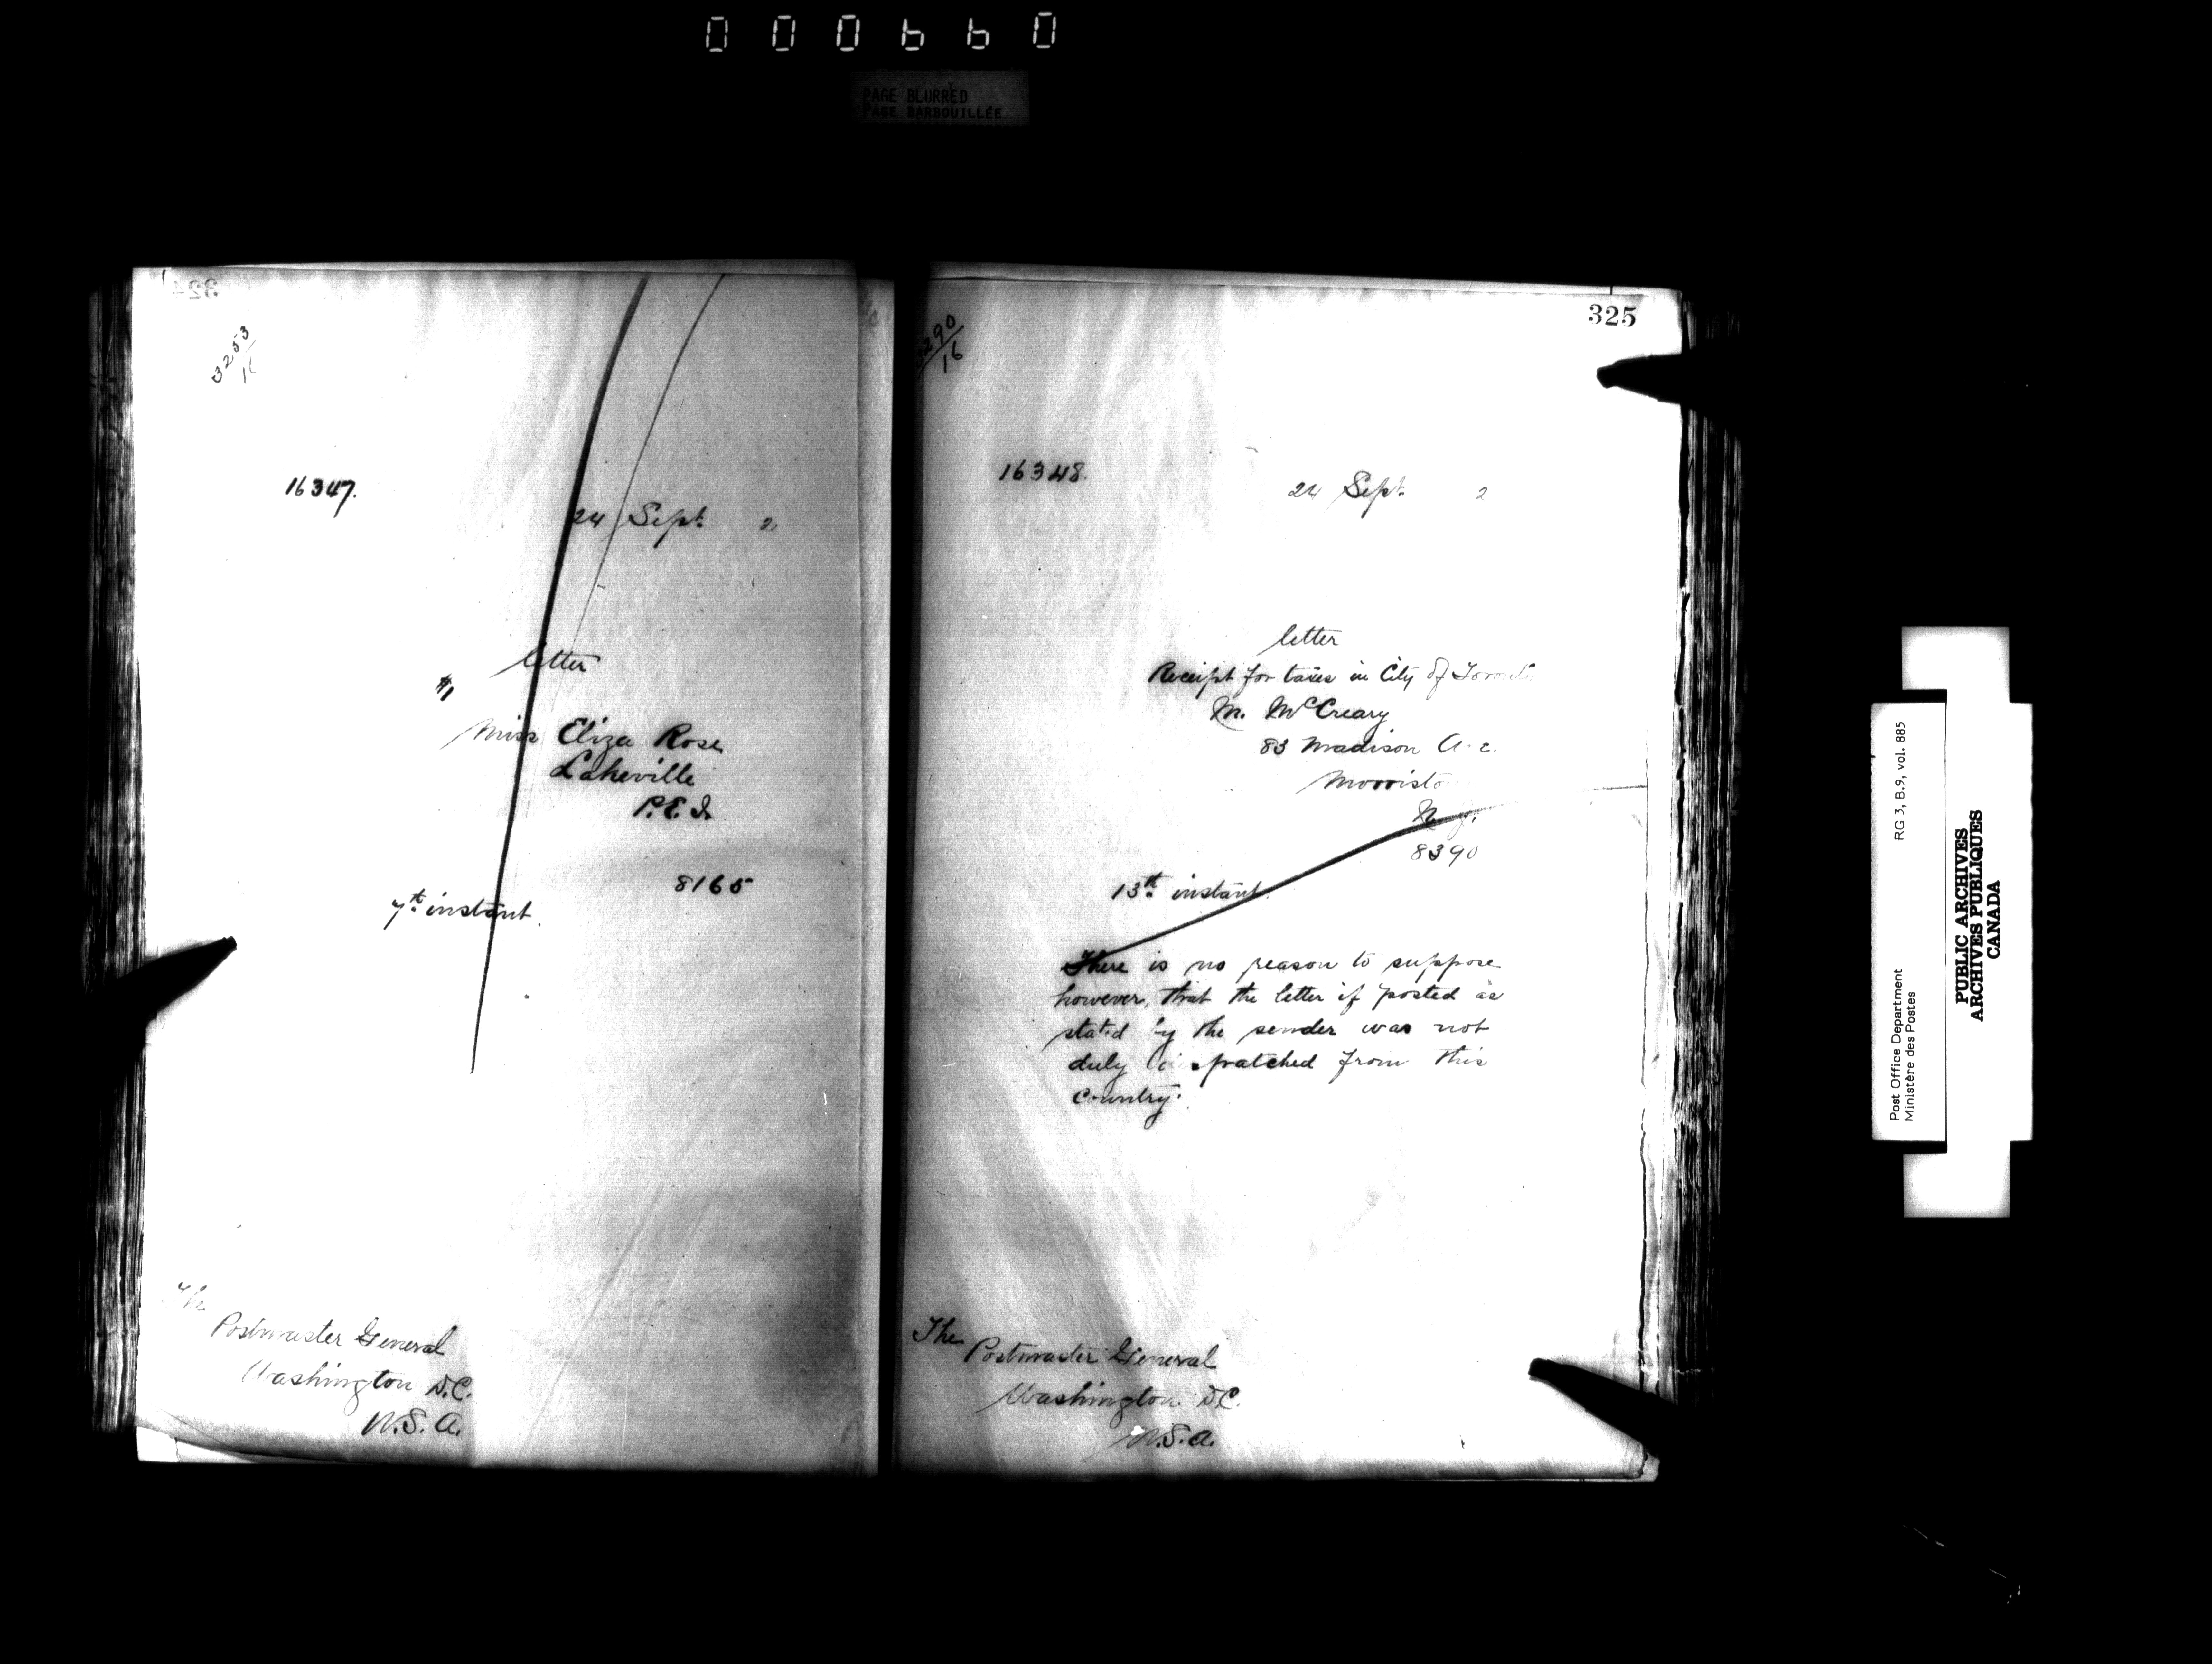 000660
PAGE BLURRED
PAGE BARBOUILLÉE
324
3253
16347.
24 Sept. 2
letter
$1
Miss Eliza Rose
Lakeville
P.E.I.
8165
7th instant.
The
Postmaster General
Washington D.C.
U.S.A.
325
3290
16
16348.
24 Sept. 2
letter
Receipt for taxes in City of Toronto
M. McCreary
83 Madison
Morristo
N.J.
8390
13th instant.
There is no reason to suppose
however, that the letter if posted as
stated by the sender was not
duly dispatched from this
country.
The
Postmaster General
Washington D.C.
U.S.A.
Post Office Department RG 3, B.9, vol. 885
Ministère des Postes
PUBLIC ARCHIVES
ARCHIVES PUBLIQUES
CANADA